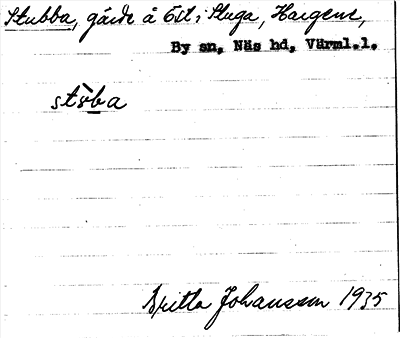 Stubba, gärde å Öst. Stuga, Hargene,
By sn, Näs hd, Värml.l.
stòba
Britta Johansson 1935